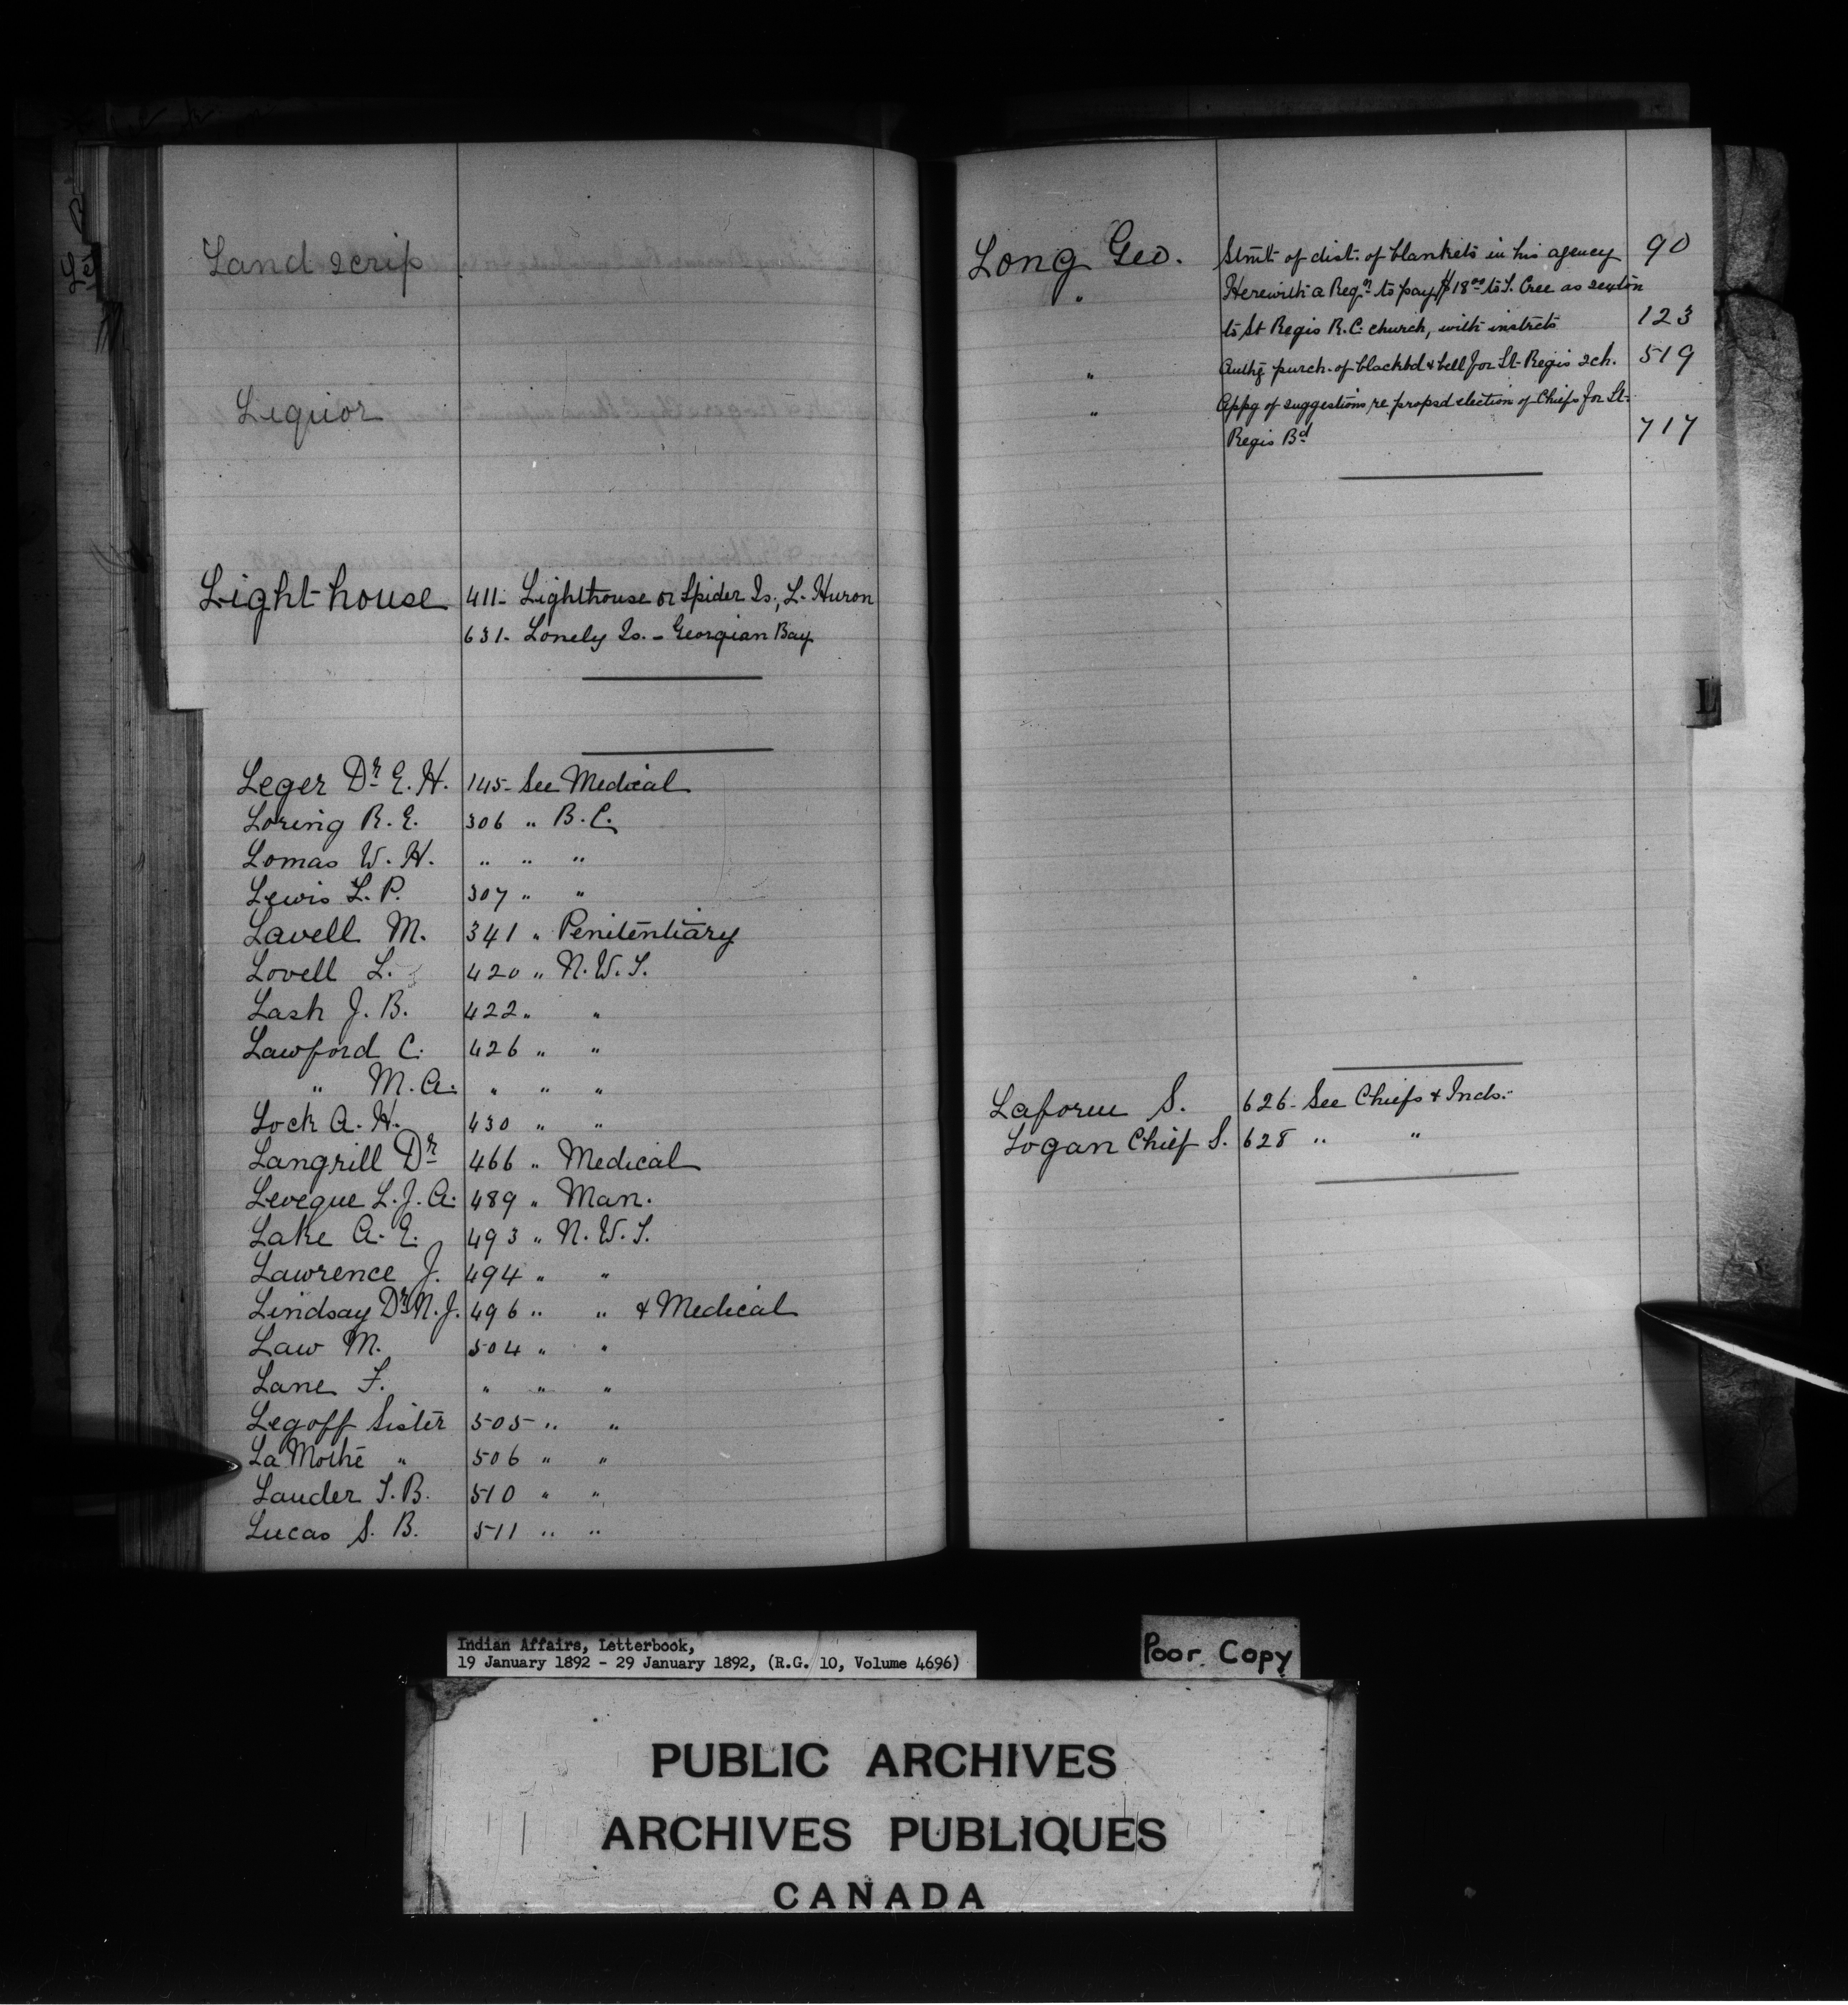 Land scrip
Liquor
Light-house 411- Lighthouse or Spider Is., L. Huron
631- Lonely Is. - Georgian Bay
Leger Dr. E. H. 145- See Medical
Loring R. E. 306 " B. C.
Lomas W. H. " " "
Lewis L. P. 307 " "
Lavell M. 341 " Penitentiary
Lovell L. 420 " N. W. T.
Lash J. B. 422 " "
Lawford C. 426 " "
" M. A. " " "
Lock A. H. 430 " "
Langrill Dr 466 " Medical
Leveque L. J. A. 489 " Man.
Lake A. E. 493 " N. W. T.
Lawrence J. 494 " "
Lindsay Dr. N. J. 496 " " & Medical
Law M. 504 " "
Lane F. " " "
Legoff Sister 505 " "
La Mothe " 506 " "
Lauder T. B. 510 " "
Lucas S. B. 511 " "
Long Geo. Stmt of dist. of blankets in his agency 90
" Herewith a Reqn to pay $18.00 to T. Cree as sexton
to St Regis R. C. church, with instrcts 123
" Authg purch. of blackbd & bell for St. Regis sch. 519
" Appg of suggestions re propsd election of Chiefs for St.
Regis Bd 717
L
Laforu S. 626- See Chiefs & Inds.
Logan Chief S. 628 " "
Indian Affairs, Letterbook,
19 January 1892 - 29 January 1892, (R.G. 10, Volume 4696)
Poor Copy
PUBLIC ARCHIVES
ARCHIVES PUBLIQUES
CANADA